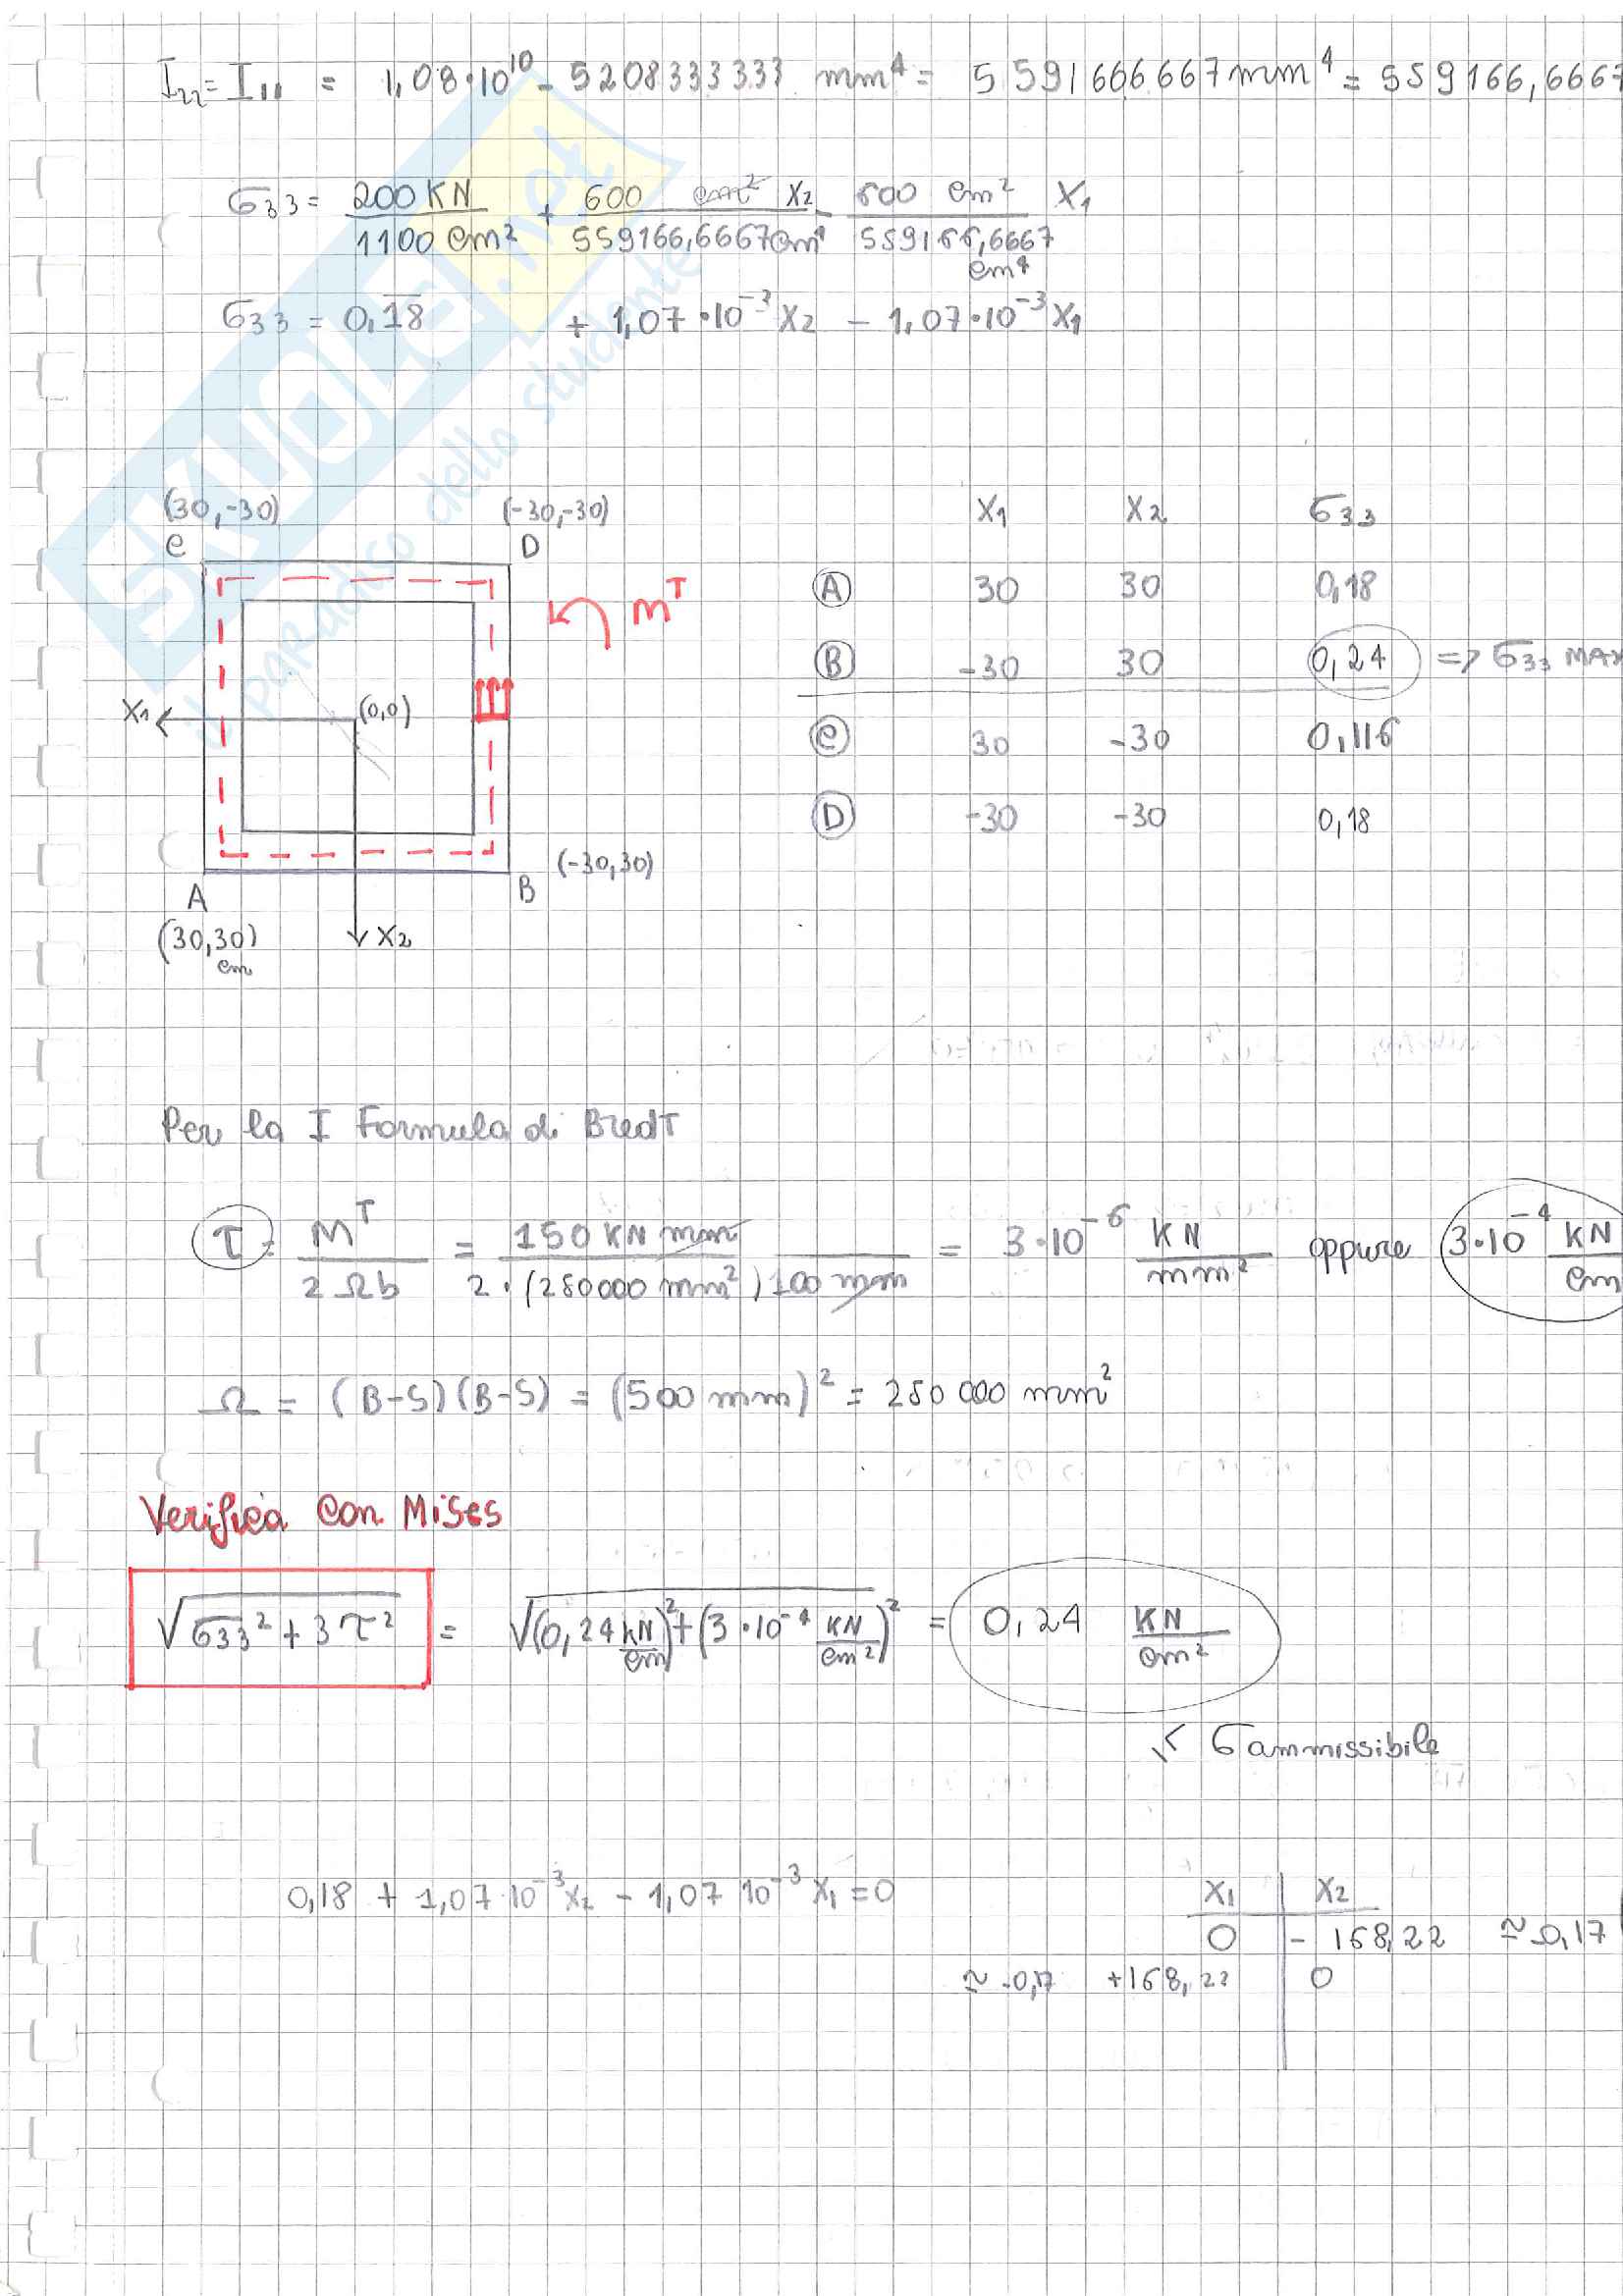 I₂₂ = I₁₁ = 1,08·10¹⁰ - 5208333333 mm⁴ = 5591666667 mm⁴ = 559166,6667
σ₃₃ = 200 KN / 1100 cm² + 600 cm² x₂ / 559166,6667 cm⁴ - 600 cm² / 559166,6667 cm⁴ x₁
σ₃₃ = 0,18 + 1,07·10⁻³ x₂ - 1,07·10⁻³ x₁
(30,-30) (-30,-30)
C D
Mᵀ
x₁ (0,0)
(-30,30)
A B
(30,30) x₂
cm
x₁ x₂ σ₃₃
A 30 30 0,18
B -30 30 0,24 => σ₃₃ MAX
C 30 -30 0,116
D -30 -30 0,18
Per la I Formula di Bredt
τ = Mᵀ / 2 Ω b = 150 KN mm / 2·(250000 mm²) 100 mm = 3·10⁻⁶ KN / mm² oppure 3·10⁻⁴ KN / cm
Ω = (B-S)(B-S) = (500 mm)² = 250 000 mm²
Verifica con Mises
√σ₃₃² + 3τ² = √(0,24 KN / cm)² + (3·10⁻⁴ KN / cm²)² = 0,24 KN / cm²
< σ ammissibile
0,18 + 1,07 10⁻³ x₂ - 1,07 10⁻³ x₁ = 0
x₁ x₂
0 - 168,22 ≈ 0,17
≈ 0,17 +168,22 0
SKUOLA.net
il paradiso dello studente